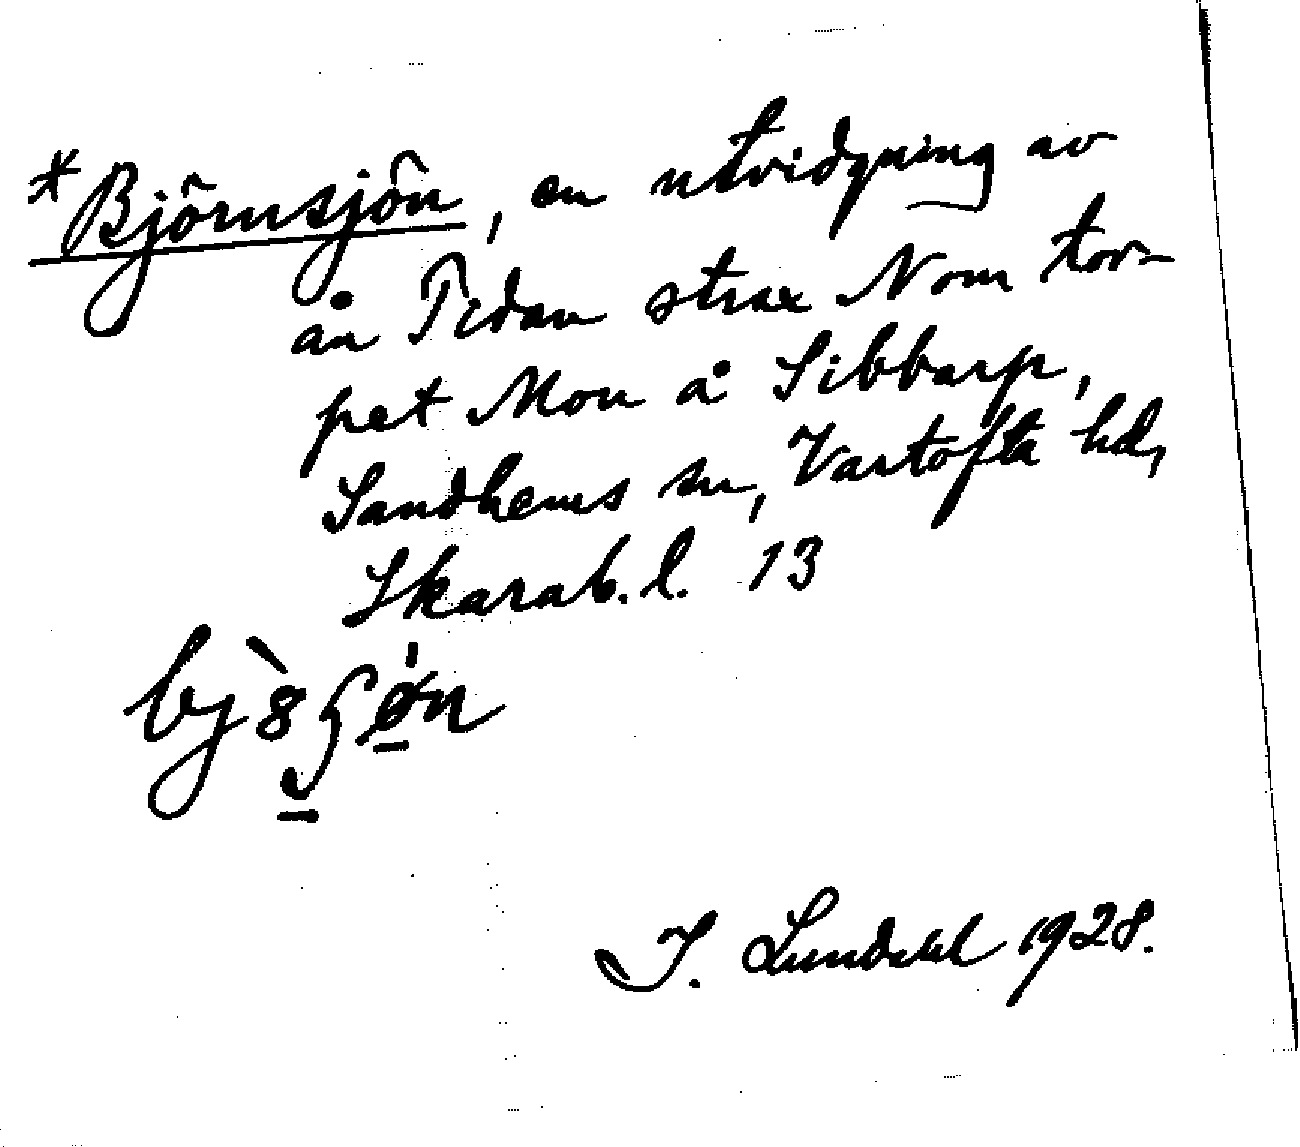 *Björnsjön, en utvidgning av
ån Tidan strax Nom tor-
pet Mon å Sibbarp,
Sandhems sn, Vartofta hd,
Skarab. l. 13
J. Lundahl 1928.